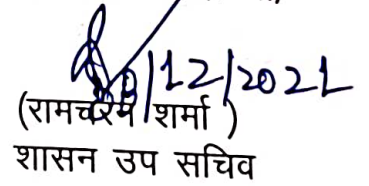 /12/2021
(रामचरण शर्मा )
शासन उप सचिव